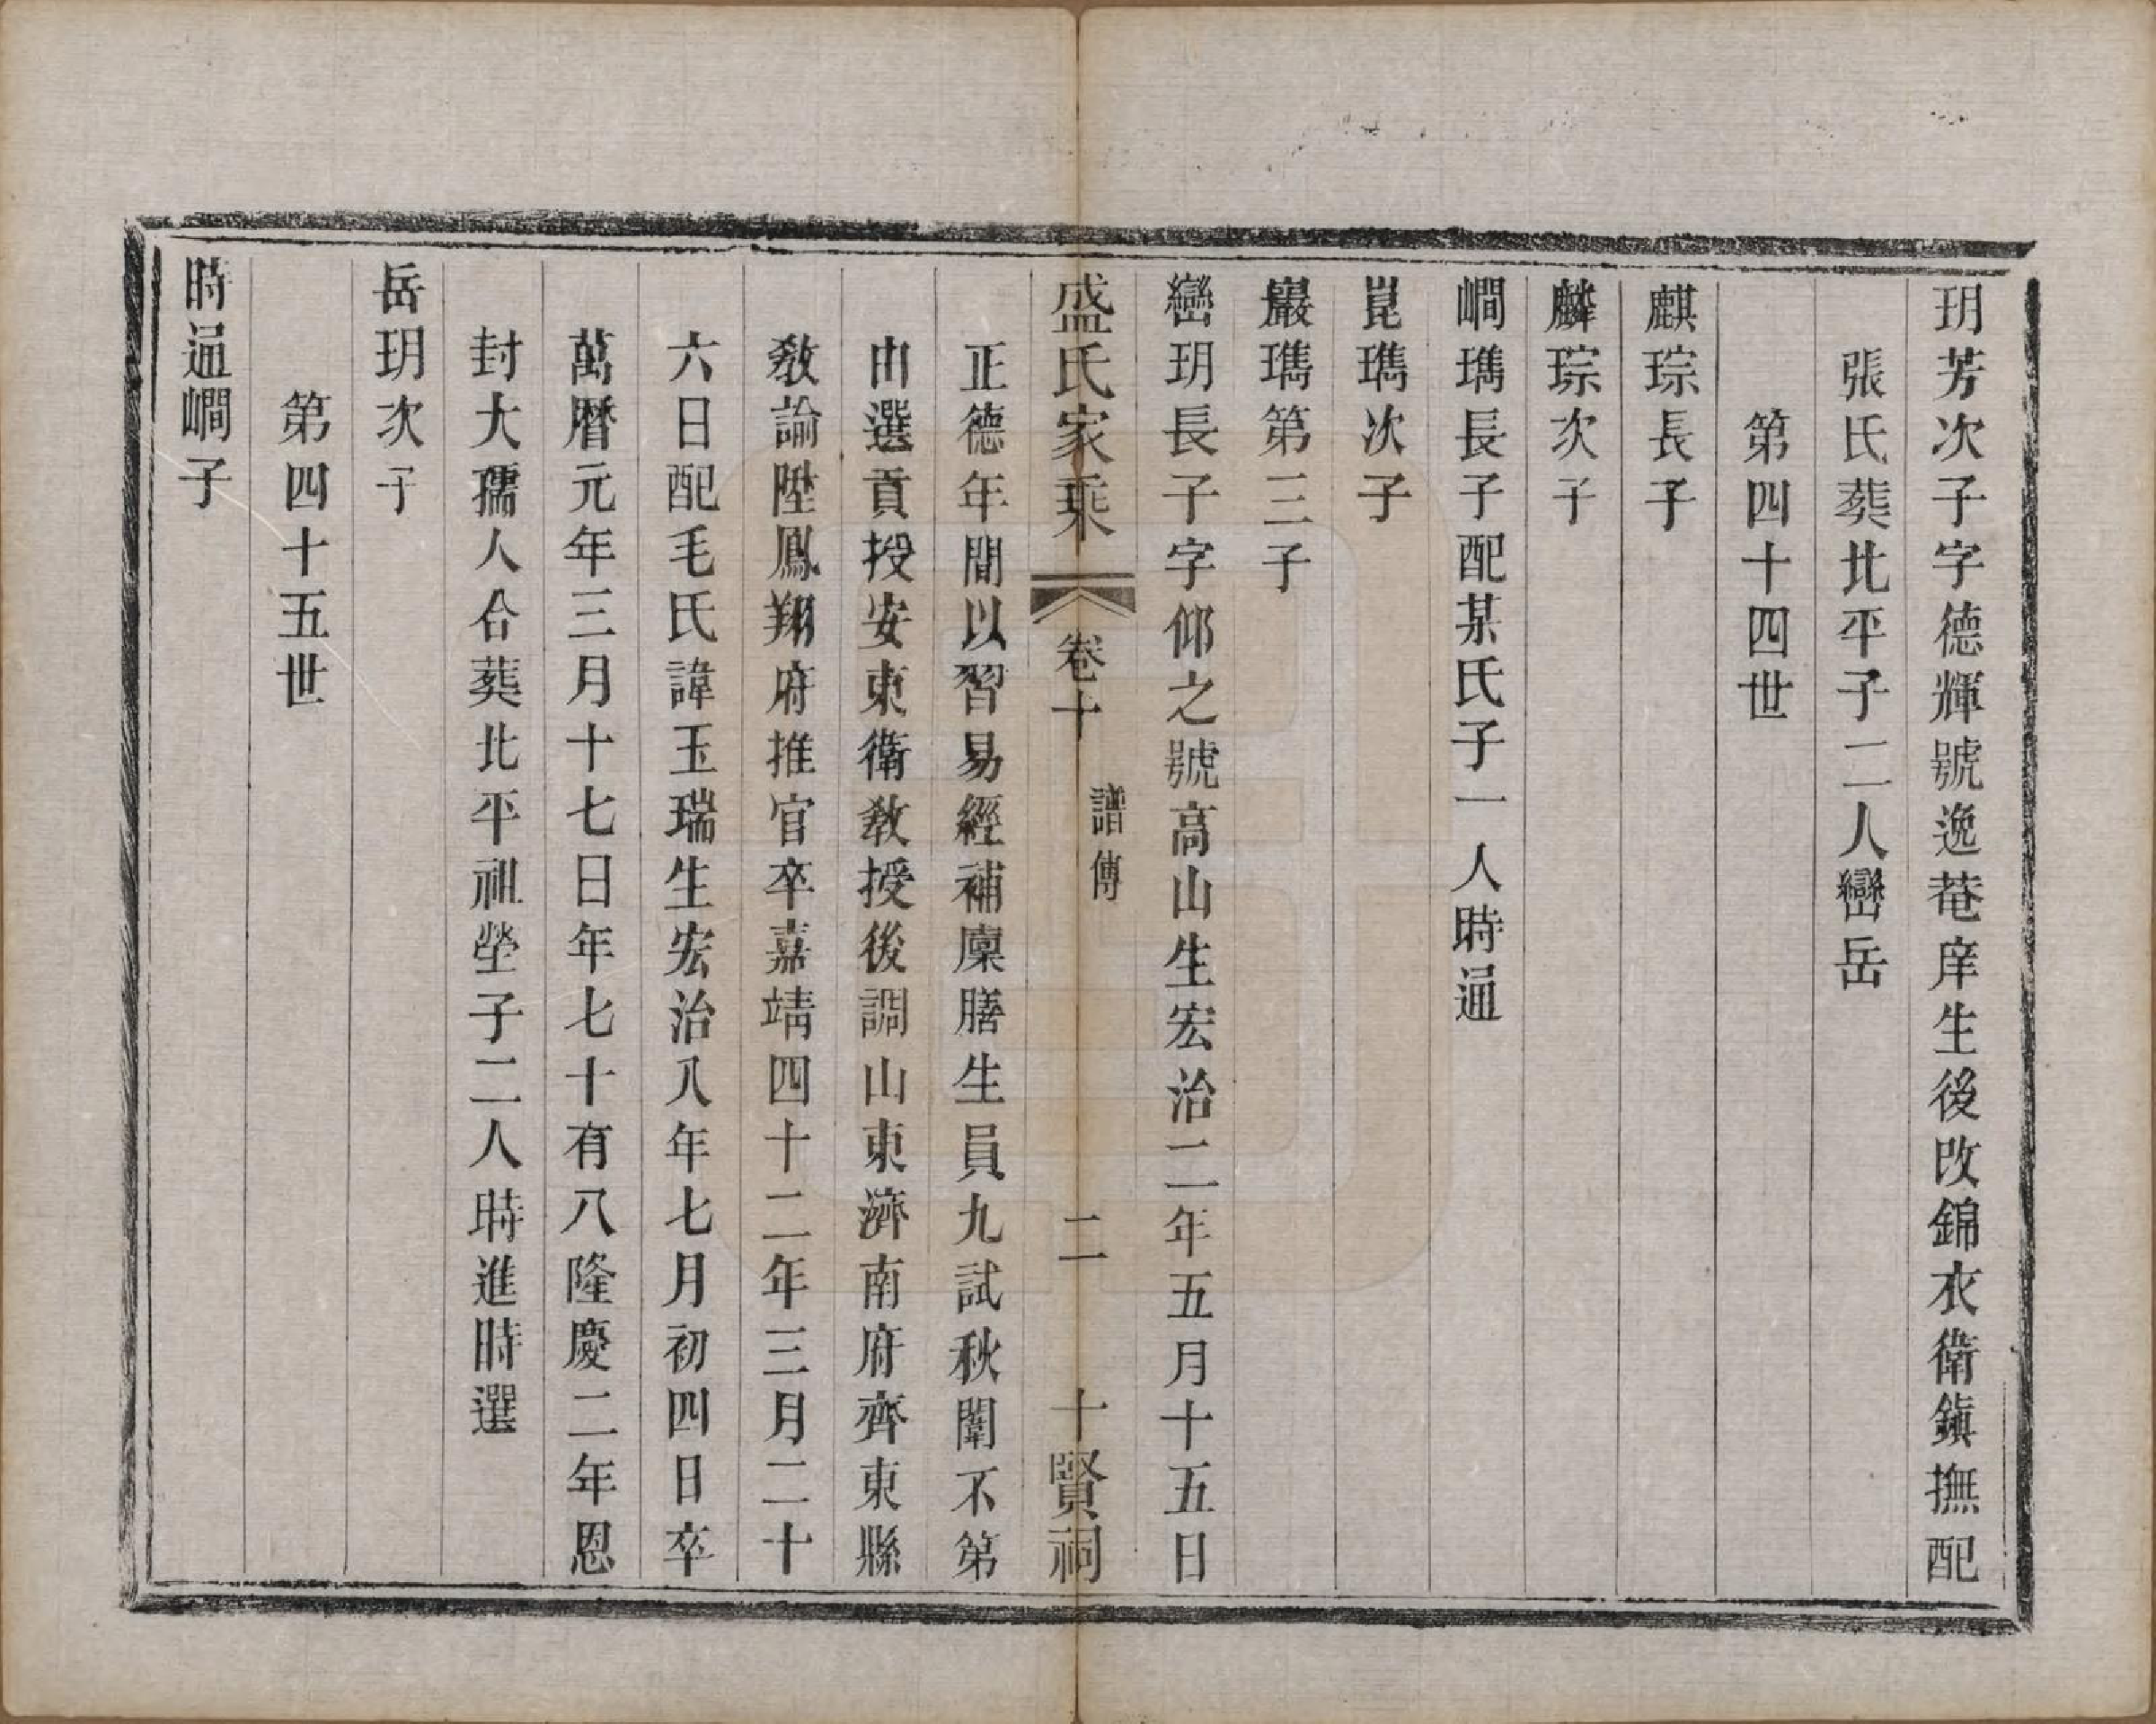 玥芳次子字德輝號逸菴庠生後改錦衣衛鎭撫配
張氏葬北平子二人巒岳
第四十四世
麒琮長子
麟琮次子
㠊㻽長子配某氏子一人時通
崑㻽次子
巖㻽第三子
巒玥長子字仰之號高山生宏治二年五月十五日
盛氏家乘
卷十
譜傳
二
十賢祠
正德年間以習易經補廩膳生員九試秋闈不第
由選貢授安東衛敎授後調山東濟南府齊東縣
敎諭陞鳳翔府推官卒嘉靖四十二年三月二十
六日配毛氏諱玉瑞生宏治八年七月初四日卒
萬曆元年三月十七日年七十有八隆慶二年恩
封大孺人合葬北平祖塋子二人時進時選
岳玥次子
第四十五世
時通㠊子